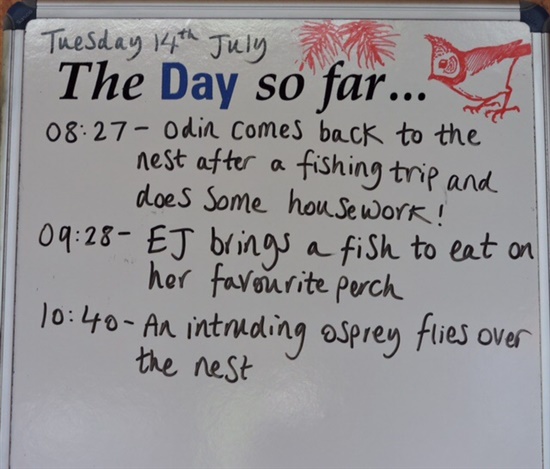 Tuesday 14th July
The Day so far...
08:27 - Odin comes back to the
nest after a fishing trip and
does some housework!
09:28 - EJ brings a fish to eat on
her favourite perch
10:40 - An intruding osprey flies over
the nest